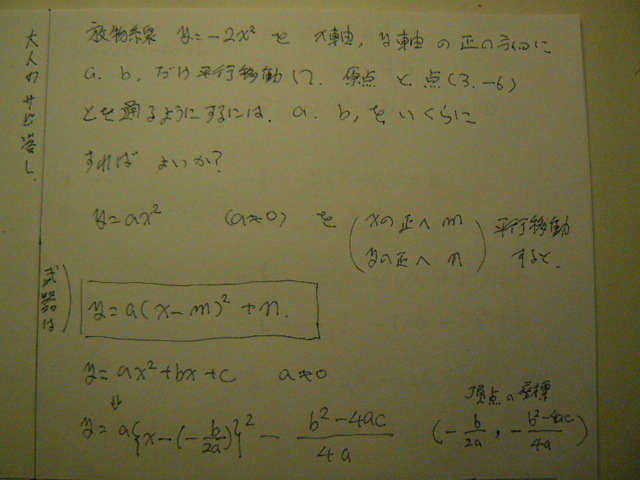 大人のサビ落し.
放物線 y=-2x² を x軸, y軸 の 正の方向に
a. b, だけ 平行移動して. 原点 と 点(3.-6)
とを通るようにするには. a. b, を いくらに
すれば よいか?
y=ax² (a≠0) を (xの正へ m yの正へ n) 平行移動 すると.
武器は) y=a(x-m)²+n.
y=ax²+bx+c a≠0
⇕ 頂点の座標
y=a{x-(-b/2a)}² - b²-4ac/4a (-b/2a, -b²-4ac/4a)